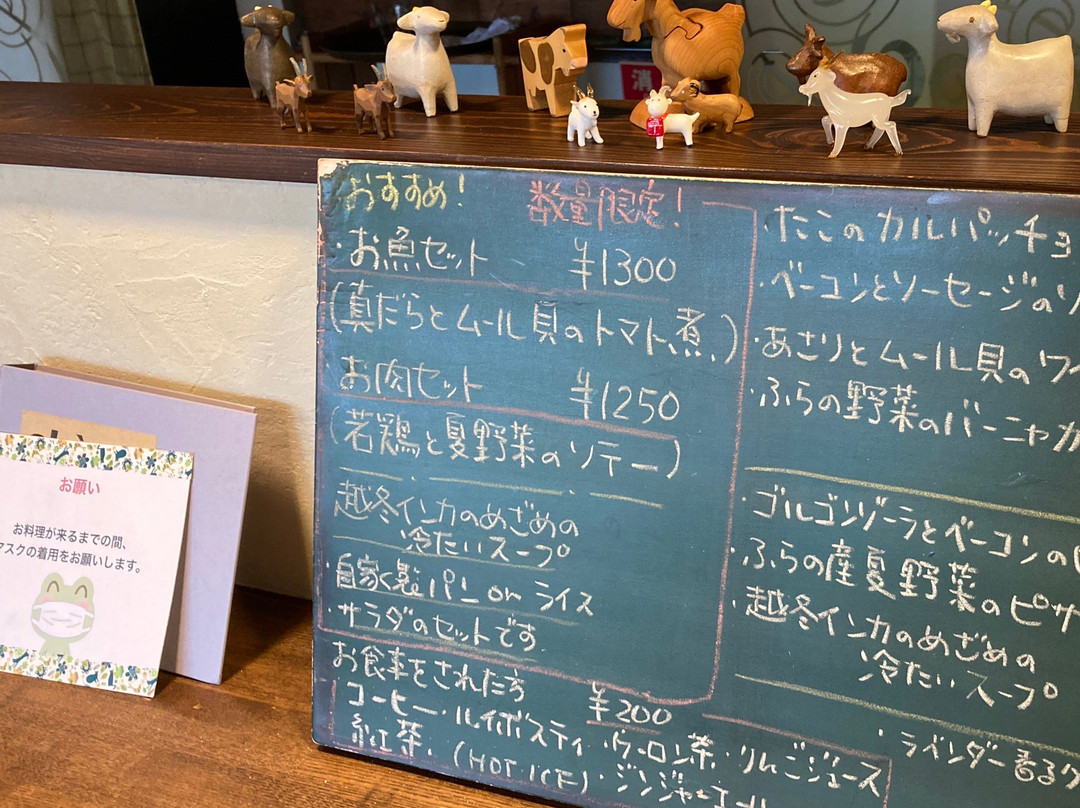 おすすめ! 数量限定!
・お魚セット ¥1300
(真だらとムール貝のトマト煮)
・お肉セット ¥1250
(若鶏と夏野菜のソテー)
越冬インカのめざめの
冷たいスープ
・自家製パン or ライス
・サラダのセットです
お食事をされた方 ¥200
コーヒー・ルイボスティ・ウーロン茶・りんごジュース
紅茶.(HOT ICE)・ジンジャーエール
・たこのカルパッチョ
・ベーコンとソーセージの
・あさりとムール貝の
・ふらの野菜のバーニャカ
・ゴルゴンゾーラとベーコンの
・ふらの産夏野菜のピザ
・越冬インカのめざめの
冷たいスープ
・ラベンダー香る
お願い
お料理が来るまでの間、
マスクの着用をお願いします。
消